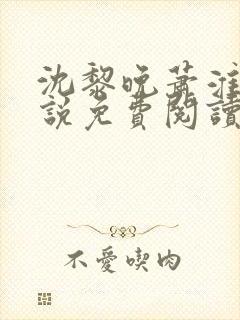 沈黎晚蕭淮
說免費閱讀
不愛喫肉